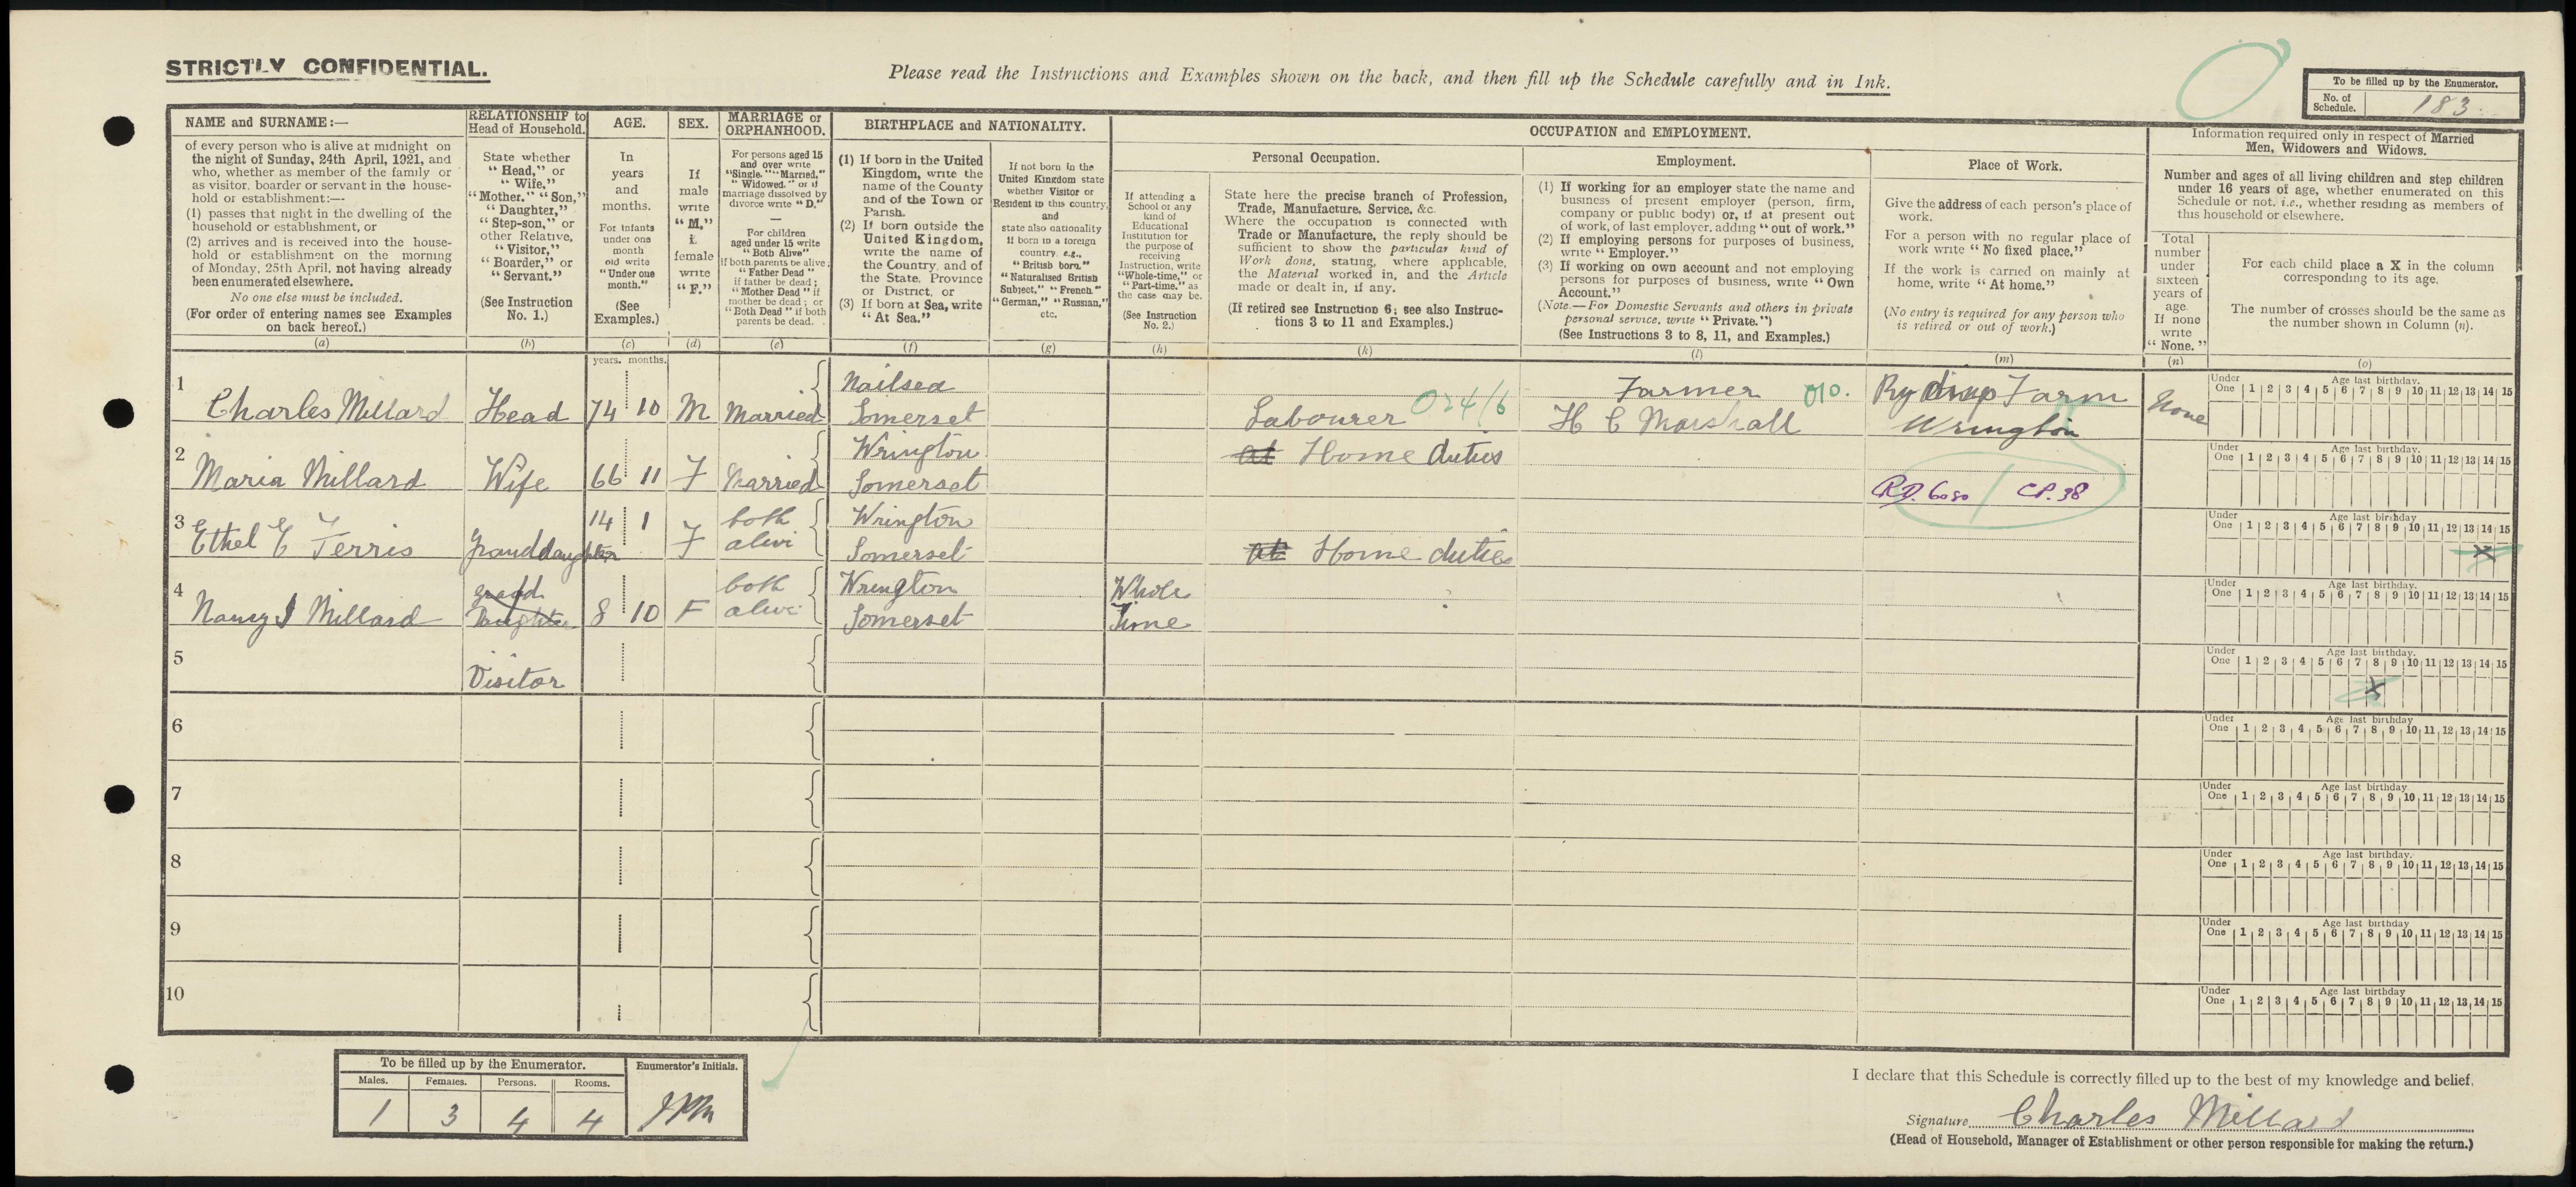 STRICTLY CONFIDENTIAL.
Please read the Instructions and Examples shown on the back, and then fill up the Schedule carefully and in Ink.
To be filled up by the Enumerator.
No. of Schedule. 183.
NAME and SURNAME:—
of every person who is alive at midnight on
the night of Sunday, 24th April, 1921, and
who, whether as member of the family or
as visitor, boarder or servant in the house-
hold or establishment:—
(1) passes that night in the dwelling of the
household or establishment, or
(2) arrives and is received into the house-
hold or establishment on the morning
of Monday, 25th April, not having already
been enumerated elsewhere.
No one else must be included.
(For order of entering names see Examples
on back hereof.)
(a)
RELATIONSHIP to
Head of Household.
State whether
"Head," or
"Wife,"
"Mother," "Son,"
"Daughter,"
"Step-son," or
other Relative,
"Visitor,"
"Boarder," or
"Servant."
(See Instruction
No. 1.)
(b)
AGE.
In
years
and
months.
For infants
under one
month
old write
"Under one
month."
(See
Examples.)
(c)
SEX.
If
male
write
"M,"
if
female
write
"F."
(d)
MARRIAGE or
ORPHANHOOD.
For persons aged 15
and over write
"Single," "Married,"
"Widowed," or if
marriage dissolved by
divorce write "D."
—
For children
aged under 15 write
"Both Alive"
if both parents be alive;
"Father Dead"
if father be dead;
"Mother Dead" if
mother be dead; or
"Both Dead" if both
parents be dead.
(e)
BIRTHPLACE and NATIONALITY.
(1) If born in the United
Kingdom, write the
name of the County
and of the Town or
Parish.
(2) If born outside the
United Kingdom,
write the name of
the Country, and of
the State, Province
or District, or
(3) If born at Sea, write
"At Sea."
(f)
If not born in the
United Kingdom state
whether Visitor or
Resident in this country,
and
state also nationality
if born in a foreign
country, e.g.,
"British born,"
"Naturalised British
Subject," "French,"
"German," "Russian,"
etc.
(g)
OCCUPATION and EMPLOYMENT.
Personal Occupation.
If attending a
School or any
kind of
Educational
Institution for
the purpose of
receiving
Instruction, write
"Whole-time," or
"Part-time," as
the case may be.
(See Instruction
No. 2.)
(h)
State here the precise branch of Profession,
Trade, Manufacture, Service, &c.
Where the occupation is connected with
Trade or Manufacture, the reply should be
sufficient to show the particular kind of
Work done, stating, where applicable,
the Material worked in, and the Article
made or dealt in, if any.
(If retired see Instruction 6; see also Instruc-
tions 3 to 11 and Examples.)
(k)
Employment.
(1) If working for an employer state the name and
business of present employer (person, firm,
company or public body) or, if at present out
of work, of last employer, adding "out of work."
(2) If employing persons for purposes of business,
write "Employer."
(3) If working on own account and not employing
persons for purposes of business, write "Own
Account."
(Note.—For Domestic Servants and others in private
personal service, write "Private.")
(See Instructions 3 to 8, 11, and Examples.)
(l)
Place of Work.
Give the address of each person's place of
work.
For a person with no regular place of
work write "No fixed place."
If the work is carried on mainly at
home, write "At home."
(No entry is required for any person who
is retired or out of work.)
(m)
Information required only in respect of Married
Men, Widowers and Widows.
Number and ages of all living children and step children
under 16 years of age, whether enumerated on this
Schedule or not, i.e., whether residing as members of
this household or elsewhere.
Total
number
under
sixteen
years of
age.
If none
write
"None."
(n)
For each child place a X in the column
corresponding to its age.
The number of crosses should be the same as
the number shown in Column (n).
(o)
years. months.
1 Charles Millard Head 74 10 M Married Nailsea Somerset Labourer 024/6 Farmer 010. H C Marshall Farm Wrington None
Under One 1 2 3 4 5 6 7 8 9 10 11 12 13 14 15 Age last birthday.
2 Maria Millard Wife 66 11 F Married Wrington Somerset at Home duties RD. 6080 / CP. 38
Under One 1 2 3 4 5 6 7 8 9 10 11 12 13 14 15 Age last birthday.
3 Ethel E Ferris Granddaughter 14 1 F both alive Wrington Somerset at Home duties
Under One 1 2 3 4 5 6 7 8 9 10 11 12 13 14 15 Age last birthday X
4 Nancy J Millard grand Daughter 8 10 F both alive Wrington Somerset Whole Time
Under One 1 2 3 4 5 6 7 8 9 10 11 12 13 14 15 Age last birthday.
5 Visitor
Under One 1 2 3 4 5 6 7 8 9 10 11 12 13 14 15 Age last birthday. X
6
Under One 1 2 3 4 5 6 7 8 9 10 11 12 13 14 15 Age last birthday
7
Under One 1 2 3 4 5 6 7 8 9 10 11 12 13 14 15 Age last birthday
8
Under One 1 2 3 4 5 6 7 8 9 10 11 12 13 14 15 Age last birthday.
9
Under One 1 2 3 4 5 6 7 8 9 10 11 12 13 14 15 Age last birthday
10
Under One 1 2 3 4 5 6 7 8 9 10 11 12 13 14 15 Age last birthday
To be filled up by the Enumerator. Enumerator's Initials.
Males. Females. Persons. Rooms.
1 3 4 4
I declare that this Schedule is correctly filled up to the best of my knowledge and belief.
Signature Charles Millard
(Head of Household, Manager of Establishment or other person responsible for making the return.)